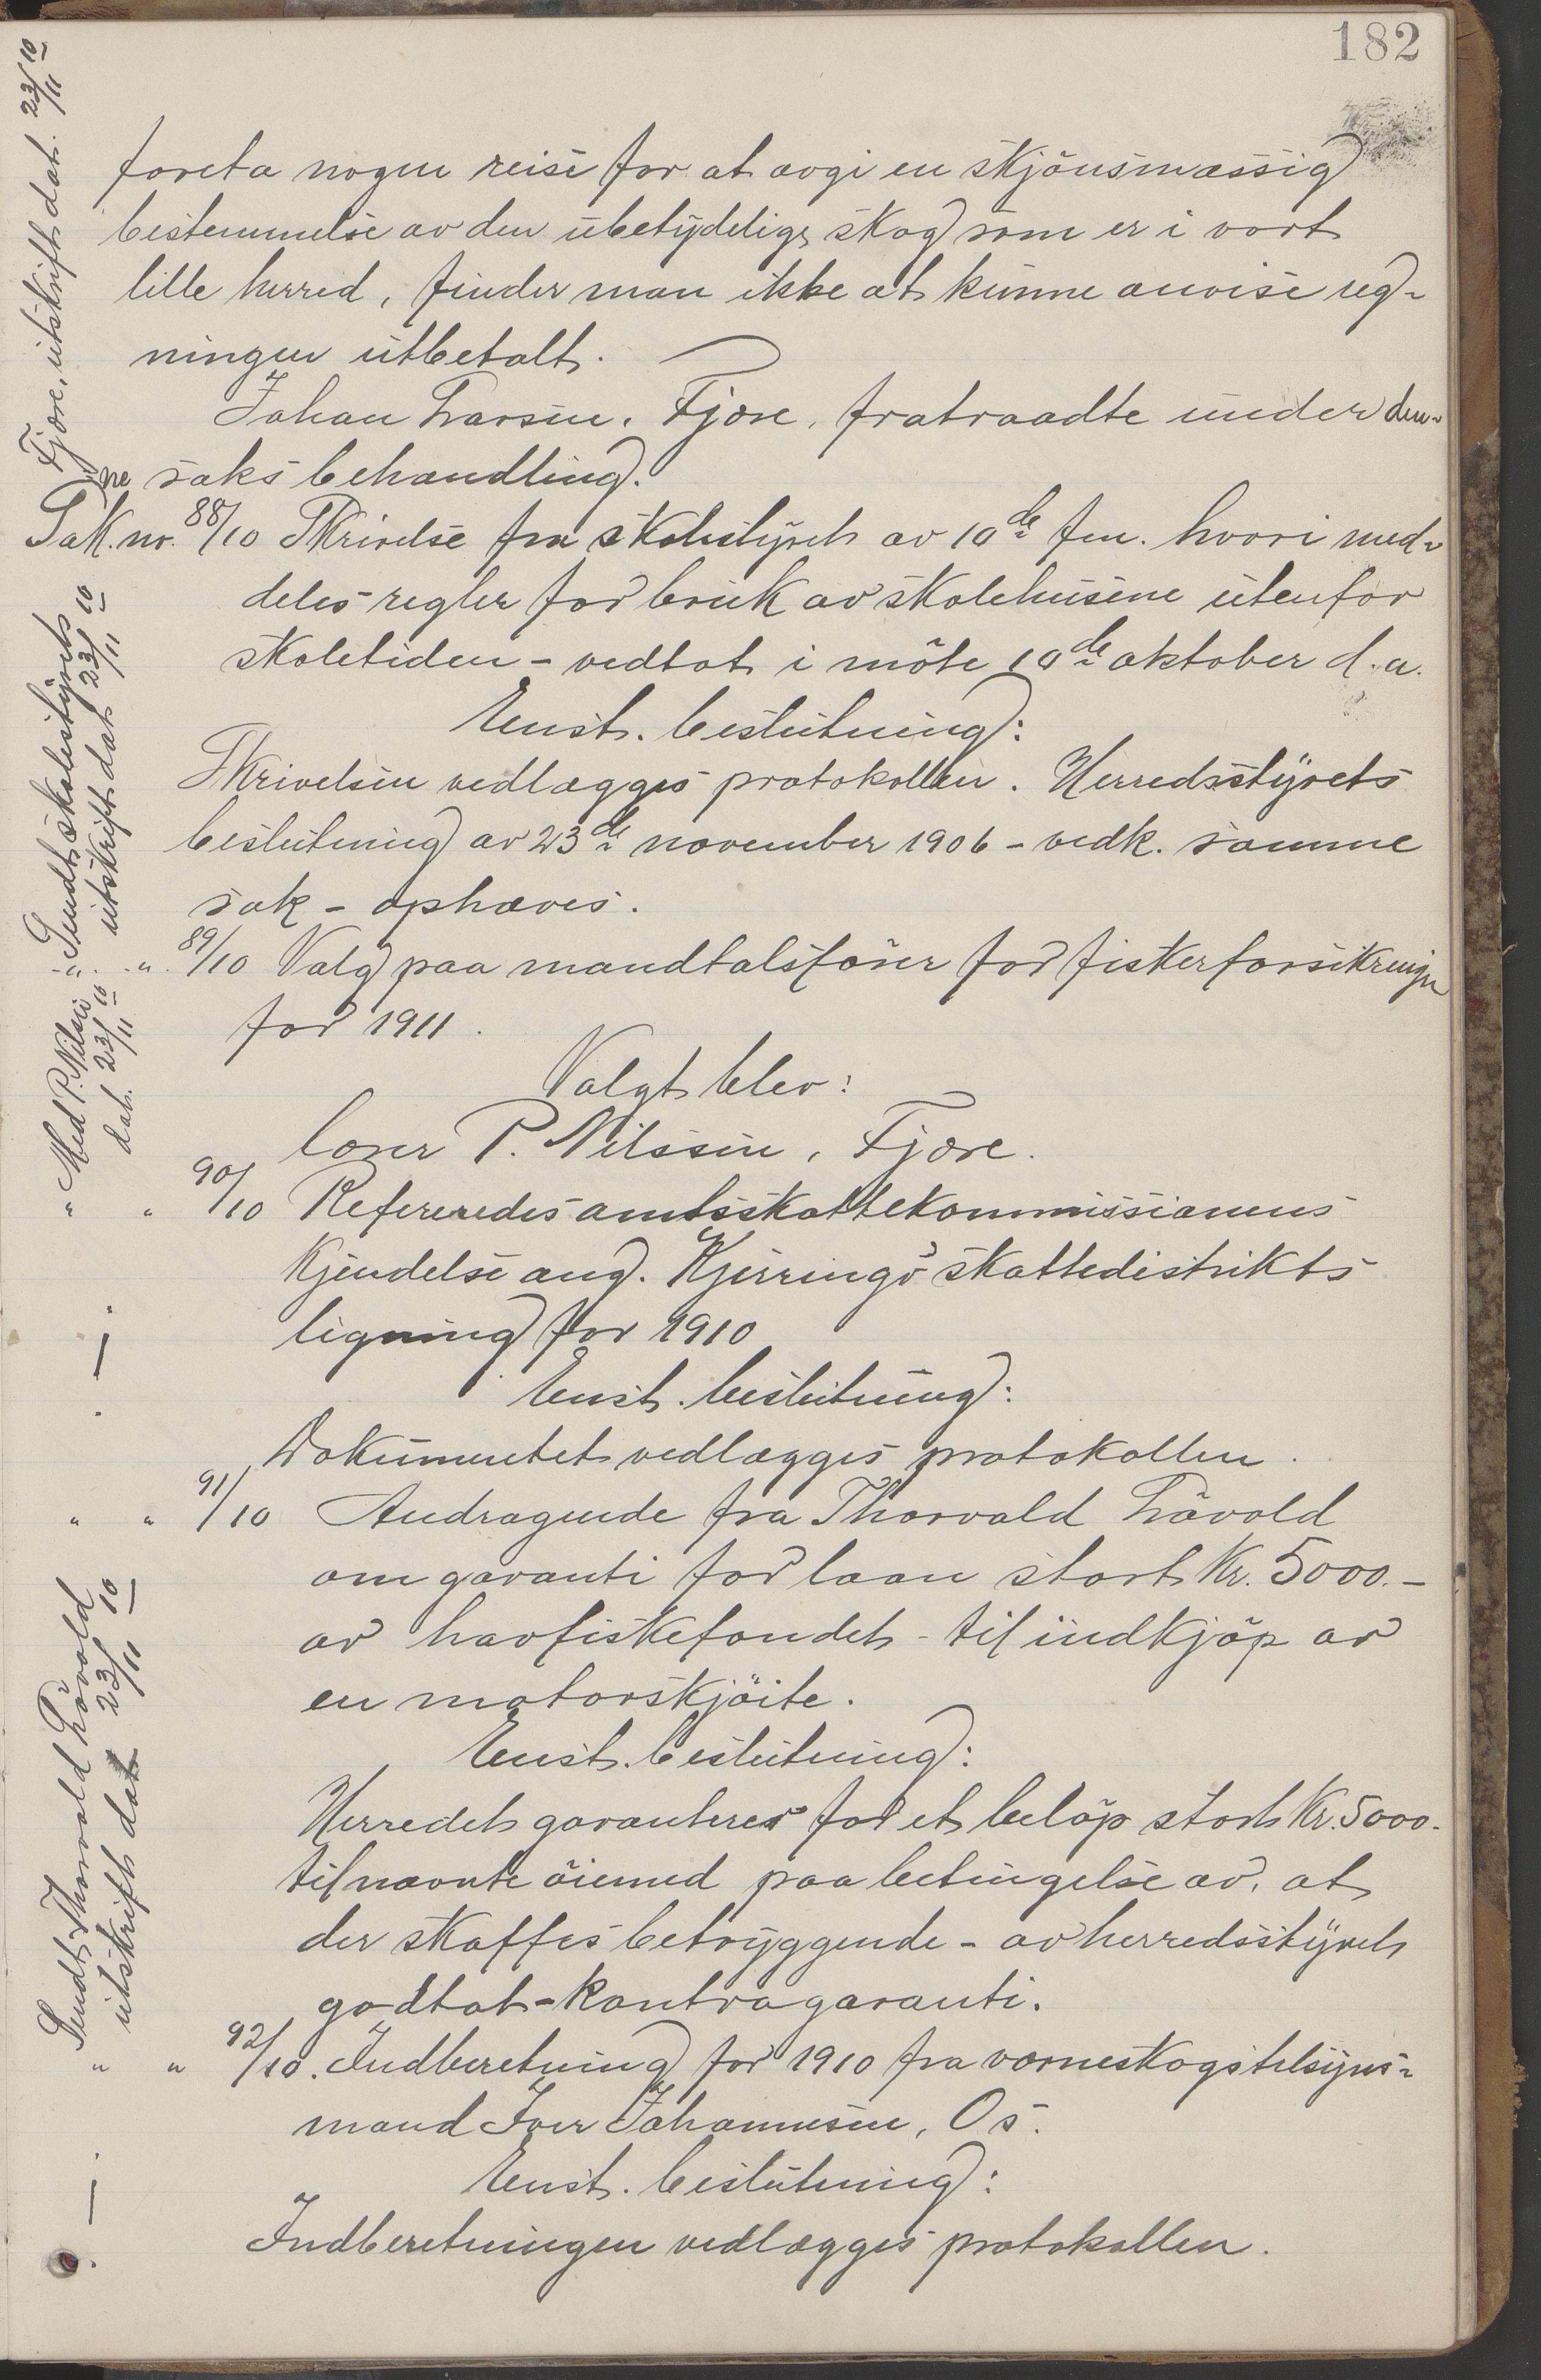 182
foreta nogen reise for at avgi en skjönsmæssig
bestemmelse av den ubetydelige skog som er i vort
lille herred, finder man ikke at kunne anvise reg-
ningen utbetalt.
Johan Larsen, Fjære, fratraadte under den-
ne saks behandling.
Sak nr. 88/10 Skrivelse fra skolestyret av 10de ds. hvori med-
deles regler for bruk av skolehusene utenfor
skoletiden - vedtat i möte 10de oktober d.a.
Enst. beslutning:
Skrivelsen vedlægges protokollen. Herredsstyrets
beslutning av 23de november 1906 - vedk. samme
sak - ophæves.
" " 89/10 Valg paa mandtalsförer for fiskerforsikringen
for 1911.
Valgt blev:
Peder P. Nilssen, Fjære.
" " 90/10 Refereredes amtsskattekommissionens
Kjendelse ang. Kjerringö skattedistrikts
ligning for 1910
Enst. beslutning:
Dokumentet vedlægges protokollen.
" " 91/10 Andragende fra Thorvald Lövold
om garanti for laan stort Kr. 5000.-
av havfiskefondet - til indkjöp av
en motorskjöite.
Enst. beslutning:
Herredet garanterer for et belöp stort Kr. 5000.
til nævnte öiemed paa betingelse av, at
der skaffes betryggende - av herredsstyret
godtat - kontragaranti.
" " 92/10. Indberetning for 1910 fra værneskogstilsyns-
mand Iver Johannesen, Os.
Enst. beslutning:
Indberetningen vedlægges protokollen.
Fjære, utskrift dat. 23/11 10
Sendt skolestyrets
utskrift dat 23/11 10
Med P. Nilsen
dat. 23/11 10
Sendt Thorvald Lövold
utskrift dat 23/11 10